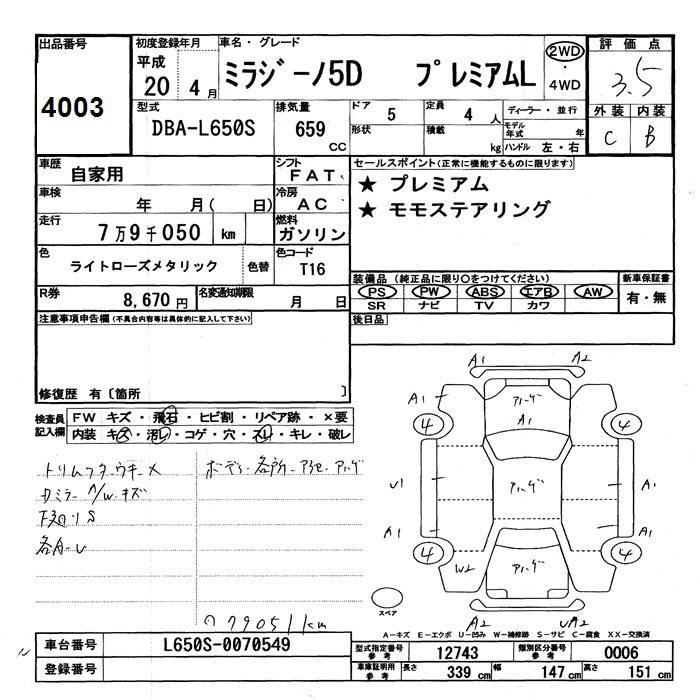 出品番号
4003
初度登録年月
平成
20 4 月
車名・グレード
ミラジーノ5D プレミアムL
2WD
・
4WD
評価点
3.5
外装 内装
C B
型式
DBA-L650S
排気量
659
CC
ドア 5
定員 4 人
形状
積載 kg
ディーラー・並行
モデル年式 年
ハンドル 左・右
車歴
自家用
シフト
FAT
車検
年 月( 日)
冷房
AC
走行
7万9千050 km
燃料
ガソリン
色
ライトローズメタリック
色替
色コード
T16
R券
8,670 円
名変通知期限
月 日
セールスポイント(正常に機能するものに限ります)
★ プレミアム
★ モモステアリング
装備品(純正品に限り○をつけてください)
PS PW ABS エアB AW
SR ナビ TV カワ
新車保証書
有・無
後日品
注意事項申告欄(不具合内容等は具体的に記入して下さい)
修復歴 有〔箇所 〕
検査員
記入欄
FW キズ・飛石・ヒビ割・リペア跡・×要
内装 キズ・汚レ・コゲ・穴・スレ・キレ・破レ
A1 A2
A1 A1
4 4
U1 A1
A1 A1
4 4
W2
A2
スペア
79051km
A-キズ E-エクボ U-凹み W-補修跡 S-サビ C-腐食 XX-交換済
車台番号
L650S-0070549
登録番号
型式指定番号
参考
12743
類別区分番号
参考
0006
車庫証明用
参考
長さ 339 cm
幅 147 cm
高さ 151 cm